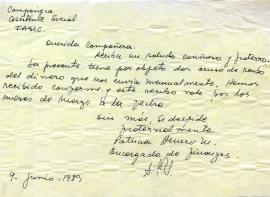 Compañera
Asistente Social
FASIC
Querida Compañera.
Reciba un saludo cariñoso y fraterno.
La presente tiene por objeto dar acuso de recibo
del dinero que nos envía mensualmente. Hemos
recibido conforme y este recibo vale por los
meses de Marzo a la fecha.
Sin más, se despide
fraternalmente
Patricia
Encargada de finanzas.
9 - Junio - 1989